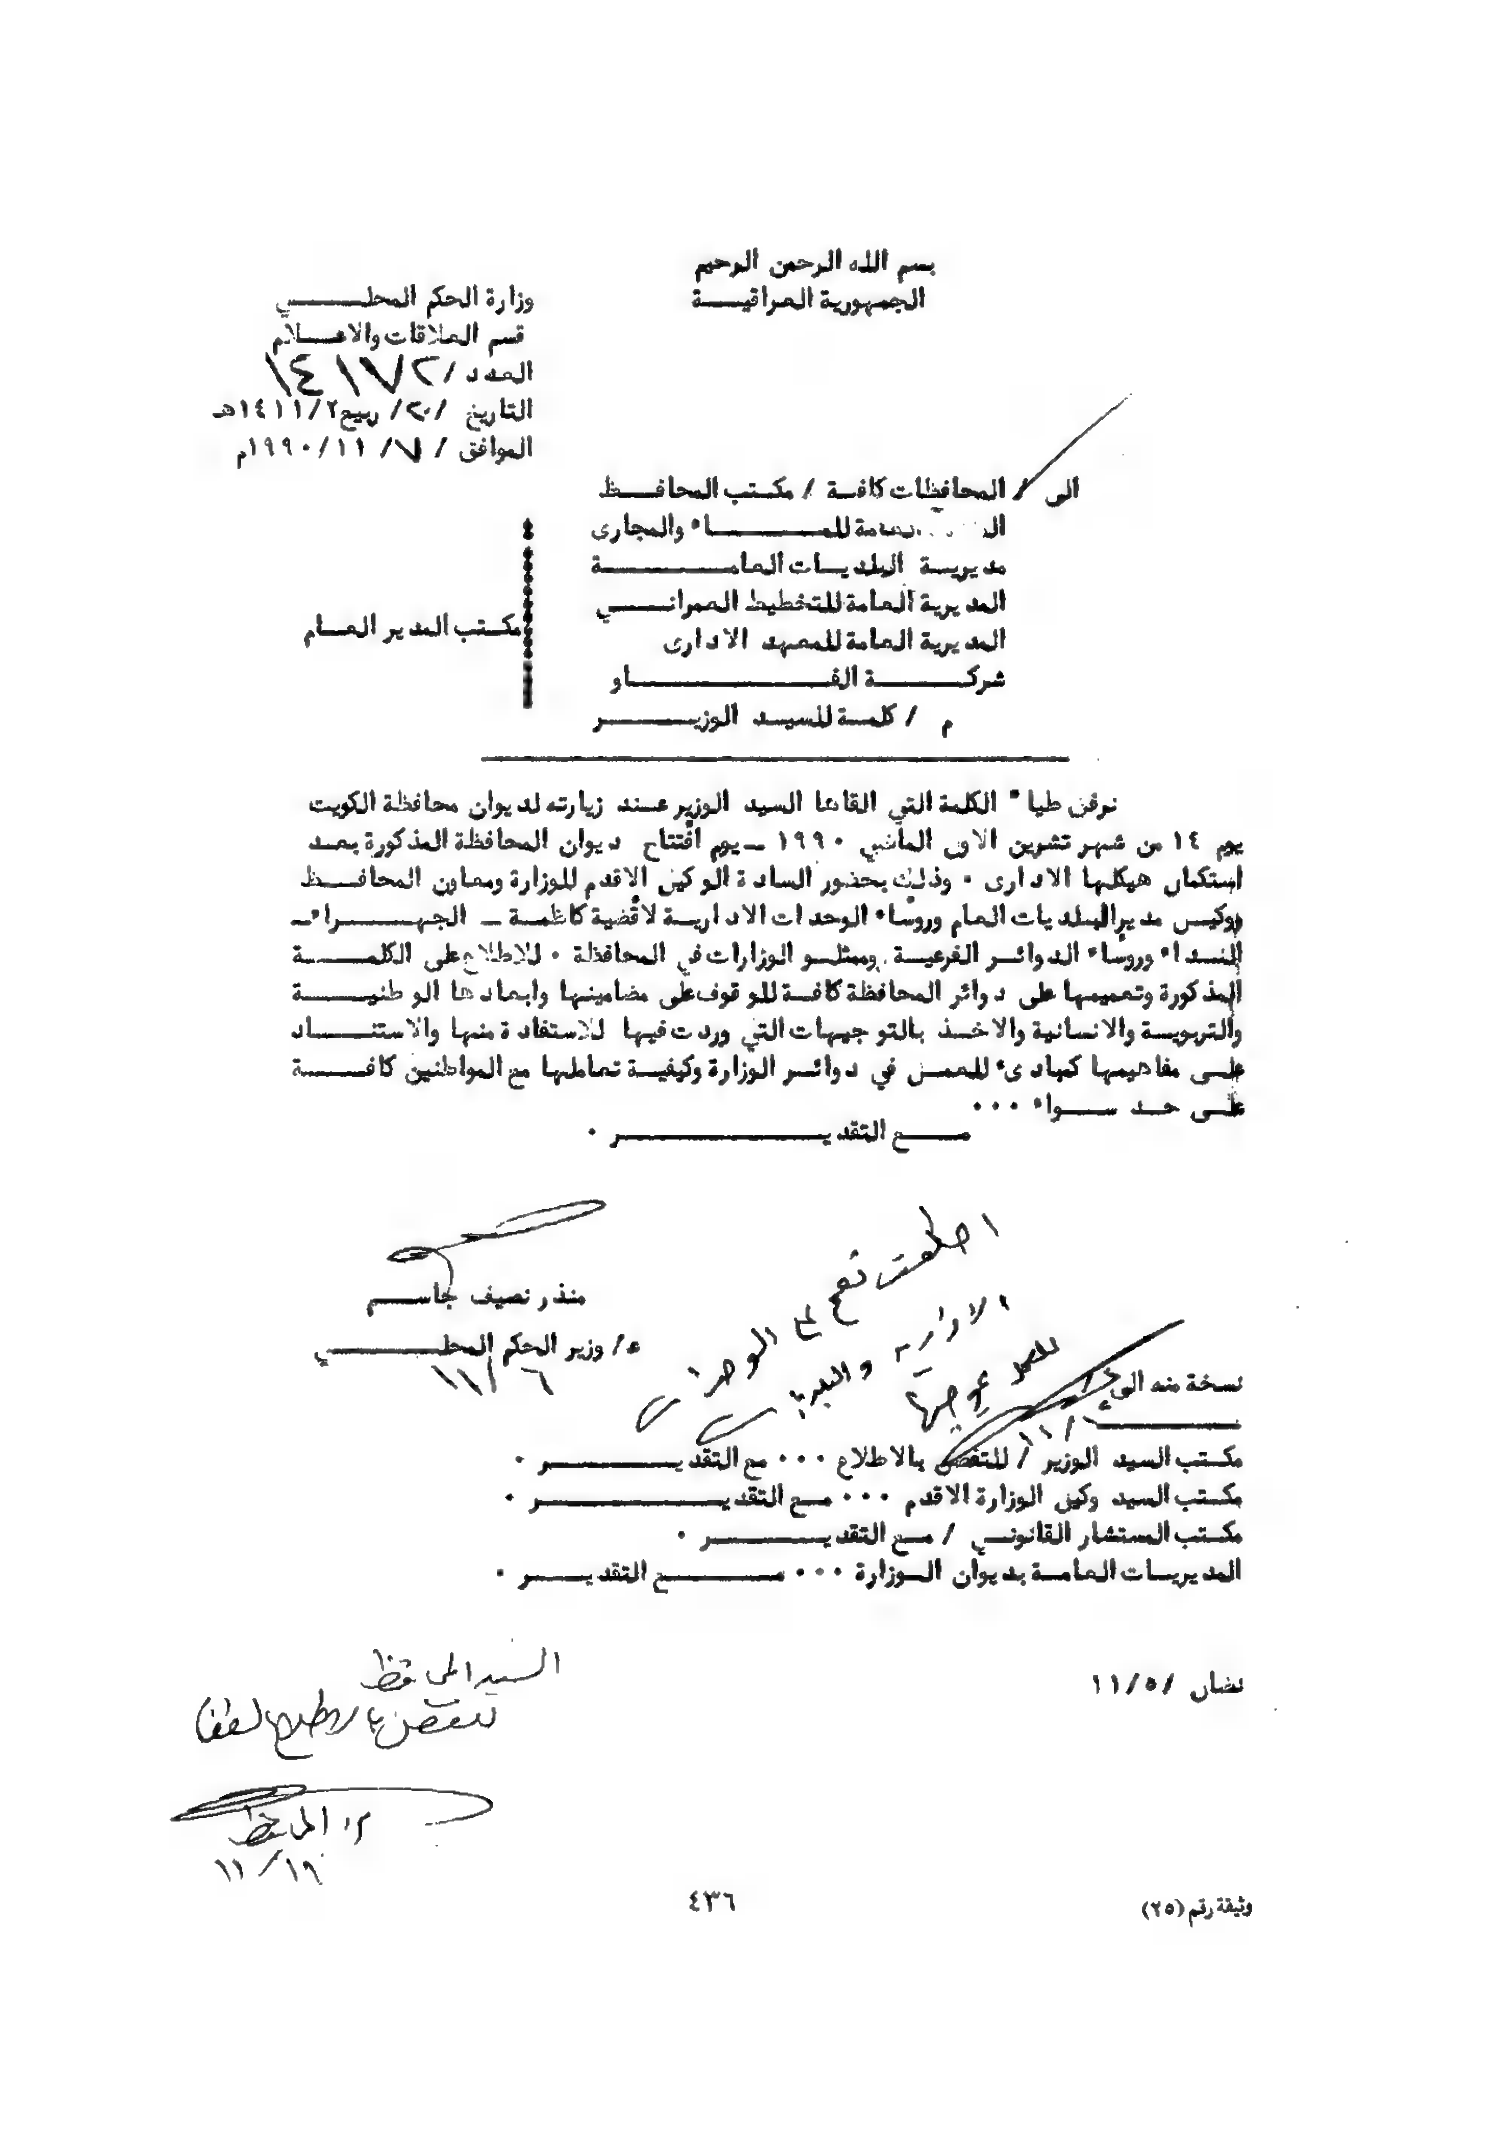 بسم الله الرحمن الرحيم
الجمهورية العراقيــة
وزارة الحكم المحلــــي
قسم العلاقات والاعــلام
العدد / ١٤١٧٢
التاريخ /٢٠/ ربيع٢/١٤١١هـ
الموافق / ٧/ ١١/١٩٩٠م
الى / المحافظات كافة / مكتب المحافــظ
العامة للمــــاء والمجارى
مديريــة البلديــات العامــــة
المديرية العامة للتخطيط العمرانــي
المديرية العامة للمعهد الادارى
شركــــة الفــــاو
مكـتب المدير العـام
م / كلمــة للسيـد الوزيــر
نرفق طياً الكلمة التي القاها السيد الوزير عـند زيارته لديوان محافظة الكويت
يوم ١٤ من شهر تشرين الاول الماضي ١٩٩٠ ــ يوم افتتاح ديوان المحافظة المذكورة بعـد
استكمال هيكلها الادارى ٠ وذلك بحضور السادة الوكيل الاقدم للوزارة ومعاون المحافــظ
ووكيـل مدير البلديات العام ورؤساء الوحدات الاداريـة لاقضية كاظمـة ــ الجهــراء ــ
النـداء ورؤساء الدوائـر الفرعيـة وممثلـو الوزارات في المحافظة ٠ للاطلاع على الكلمـــة
المذكورة وتعميمها على دوائر المحافظة كافـة للوقوف على مضامينها وابعادها الوطنيـــة
والتربويـة والانسانية والاخـذ بالتوجيهات التي وردت فيها للاستفادة منها والاستنــاد
علـى مفاهيمها كمبادىء للعمـل في دوائـر الوزارة وكيفيـة تعاملها مع المواطنين كافـــة
علـى حـد ســواء ٠٠٠
مـــع التقديــــــر ٠
اطلعت تعمم على الوحدات
الادارية والبلديات
للعمل بموجبها
١١/
منذر نصيف جاســم
ع/ وزير الحكم المحلــــي
٦ /١١
نسخة منه الى /
مكـتب السيد الوزير / للتفضل بالاطلاع ٠٠٠ مع التقديــــر ٠
مكـتب السيد وكيل الوزارة الاقدم ٠٠٠ مـع التقديـــــر ٠
مكـتب المستشار القانونـي / مـع التقديــــر ٠
المديريـات العامـة بديوان الـوزارة ٠٠٠ مــــع التقديـــر ٠
نضال /١١/٥
السيد المحافظ
للتفضل بالاطلاع لطفا
م. المحافظ
١٩/ ١١
٤٣٦
وثيقة رقم (٢٥)